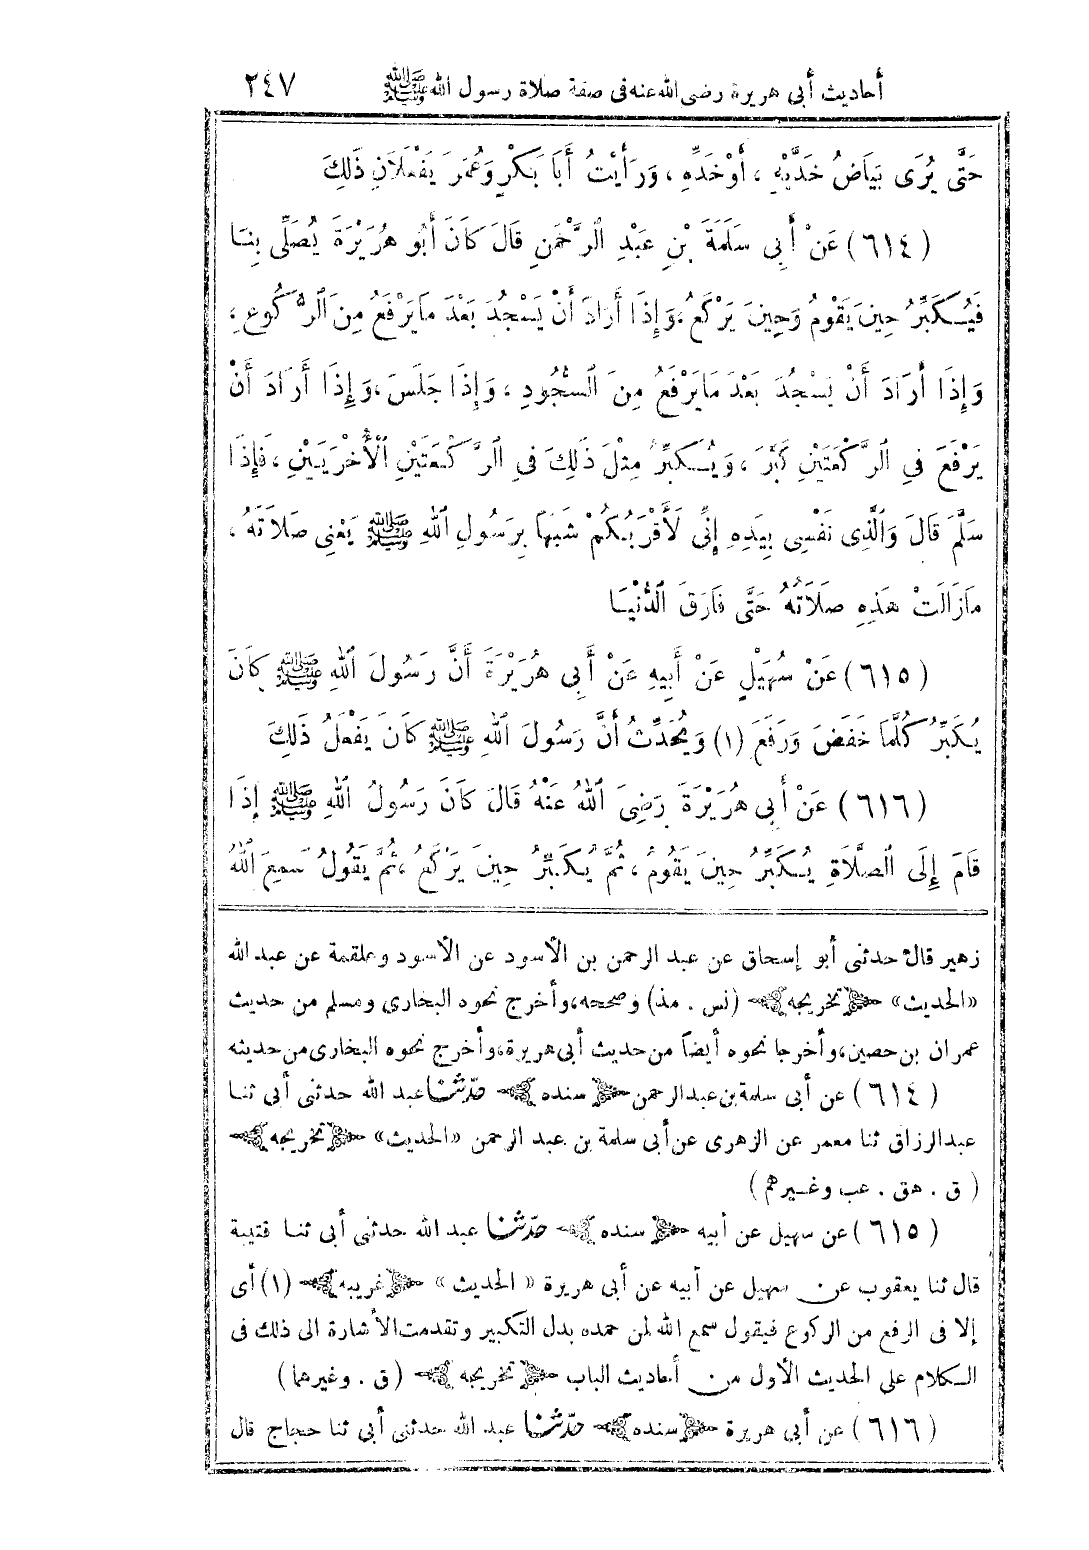 أحاديث أبي هريرة رضى الله عنه فى صفة صلاة رسول الله ﷺ ٢٤٧
حَتَّى يُرَى بَيَاضُ خَدَّيْهِ ، أَوْخَدِّهِ ، وَرَأَيْتُ أَبَا بَكْرٍ وَعُمَرَ يَفْعَلَانِ ذَلِكَ
(٦١٤) عَنْ أَبِى سَلَمَةَ بْنِ عَبْدِ الرَّحْمَنِ قَالَ كَانَ أَبُو هُرَيْرَةَ يُصَلِّى بِنَا
فَيُكَبِّرُ حِينَ يَقُومُ وَحِينَ يَرْكَعُ ، وَإِذَا أَرَادَ أَنْ يَسْجُدَ بَعْدَ مَا يَرْفَعُ مِنَ الرُّكُوعِ ،
وَإِذَا أَرَادَ أَنْ يَسْجُدَ بَعْدَ مَا يَرْفَعُ مِنَ السُّجُودِ ، وَإِذَا جَلَسَ ، وَإِذَا أَرَادَ أَنْ
يَرْفَعَ فِى الرَّكْعَتَيْنِ كَبَّرَ ، وَيُكَبِّرُ مِثْلَ ذَلِكَ فِى الرَّكْعَتَيْنِ الْأُخْرَيَيْنِ ، فَإِذَا
سَلَّمَ قَالَ وَالَّذِى نَفْسِى بِيَدِهِ إِنِّى لَأَقْرَبُكُمْ شَبَهًا بِرَسُولِ اللهِ ﷺ يَعْنِى صَلَاتَهُ ،
مَازَالَتْ هَذِهِ صَلَاتُهُ حَتَّى فَارَقَ الدُّنْيَا
(٦١٥) عَنْ سُهَيْلٍ عَنْ أَبِيهِ عَنْ أَبِى هُرَيْرَةَ أَنَّ رَسُولَ اللهِ ﷺ كَانَ
يُكَبِّرُ كُلَّمَا خَفَضَ وَرَفَعَ (١) وَيُحَدِّثُ أَنَّ رَسُولَ اللهِ ﷺ كَانَ يَفْعَلُ ذَلِكَ
(٦١٦) عَنْ أَبِى هُرَيْرَةَ رَضِىَ اللهُ عَنْهُ قَالَ كَانَ رَسُولُ اللهِ ﷺ إِذَا
قَامَ إِلَى الصَّلَاةِ يُكَبِّرُ حِينَ يَقُومُ ، ثُمَّ يُكَبِّرُ حِينَ يَرْكَعُ ، ثُمَّ يَقُولُ سَمِعَ اللهُ
زهير قال حدثنى أبو إسحاق عن عبد الرحمن بن الأسود عن الأسود وعلقمة عن عبد الله
«الحديث» تخريجه (نس . مذ) وصححه، وأخرج نحوه البخارى ومسلم من حديث
عمران بن حصين، وأخرجا نحوه أيضاً من حديث أبى هريرة، وأخرج نحوه البخارى من حديثه
(٦١٤) عن أبى سلمة بن عبد الرحمن سنده حدّثنا عبد الله حدثنى أبى ثنا
عبد الرزاق ثنا معمر عن الزهرى عن أبى سلمة بن عبد الرحمن «الحديث» تخريجه
( ق . هق . عب وغيرهم )
(٦١٥) عن سهيل عن أبيه سنده حدّثنا عبد الله حدثنى أبى ثنا قتيبة
قال ثنا يعقوب عن سهيل عن أبيه عن أبى هريرة « الحديث » غريبه (١) أى
إلا فى الرفع من الركوع فيقول سمع الله لمن حمده بدل التكبير وتقدمت الأشارة الى ذلك فى
الكلام على الحديث الأول من أحاديث الباب تخريجه (ق . وغيرهما)
(٦١٦) عن أبى هريرة سنده حدّثنا عبد الله حدثنى أبى ثنا حجاج قال